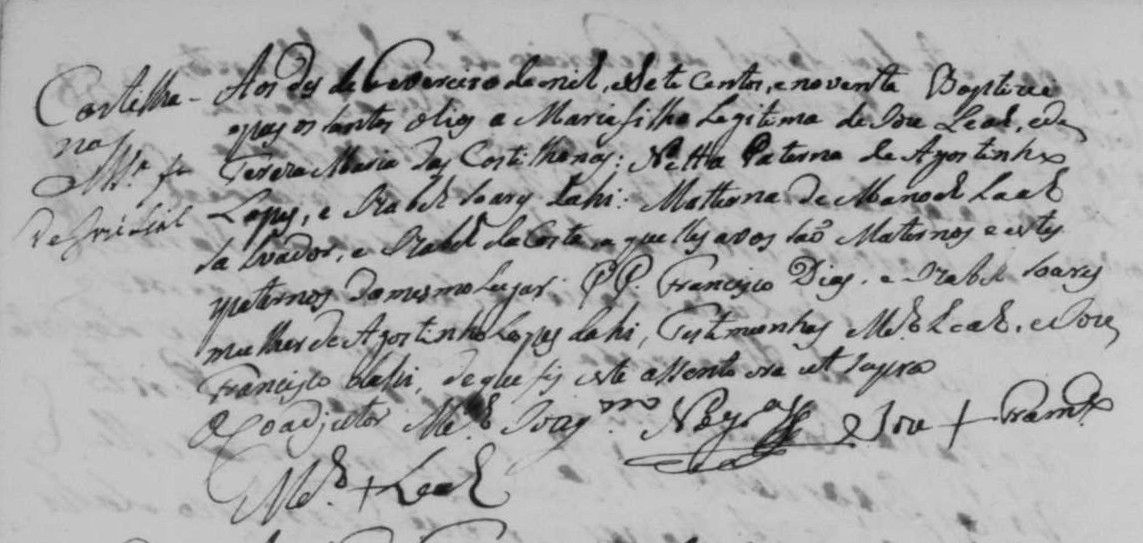 Costilha-
nas
Mª fª
de José Leal
Aos des de Fevereiro de mil, e Sete Centos, e noventa Baptizei
e pus os Santos olios a Maria filha Legitima de Joze Leal, e de
Tereza Maria das Costilhanas: Netta Paterna de Agostinho
Lopes, e Izabel Soares Lahi: Matterna de Manoel Leal
Salvador, e Izabel da Costa, aquelles avos são Maternos e estes
paternos do mesmo Lugar. P.P. Francisco Dias, e Izabel Soares
mulher de Agostinho Lopes Lahi, Testimunhas Mel. Leal, e Joze
Francisco Lahi, de que fis este assento era ut supra
O Coadjuttor Mel. Joaqm.
Joze + Franco.
Mel. + Leal